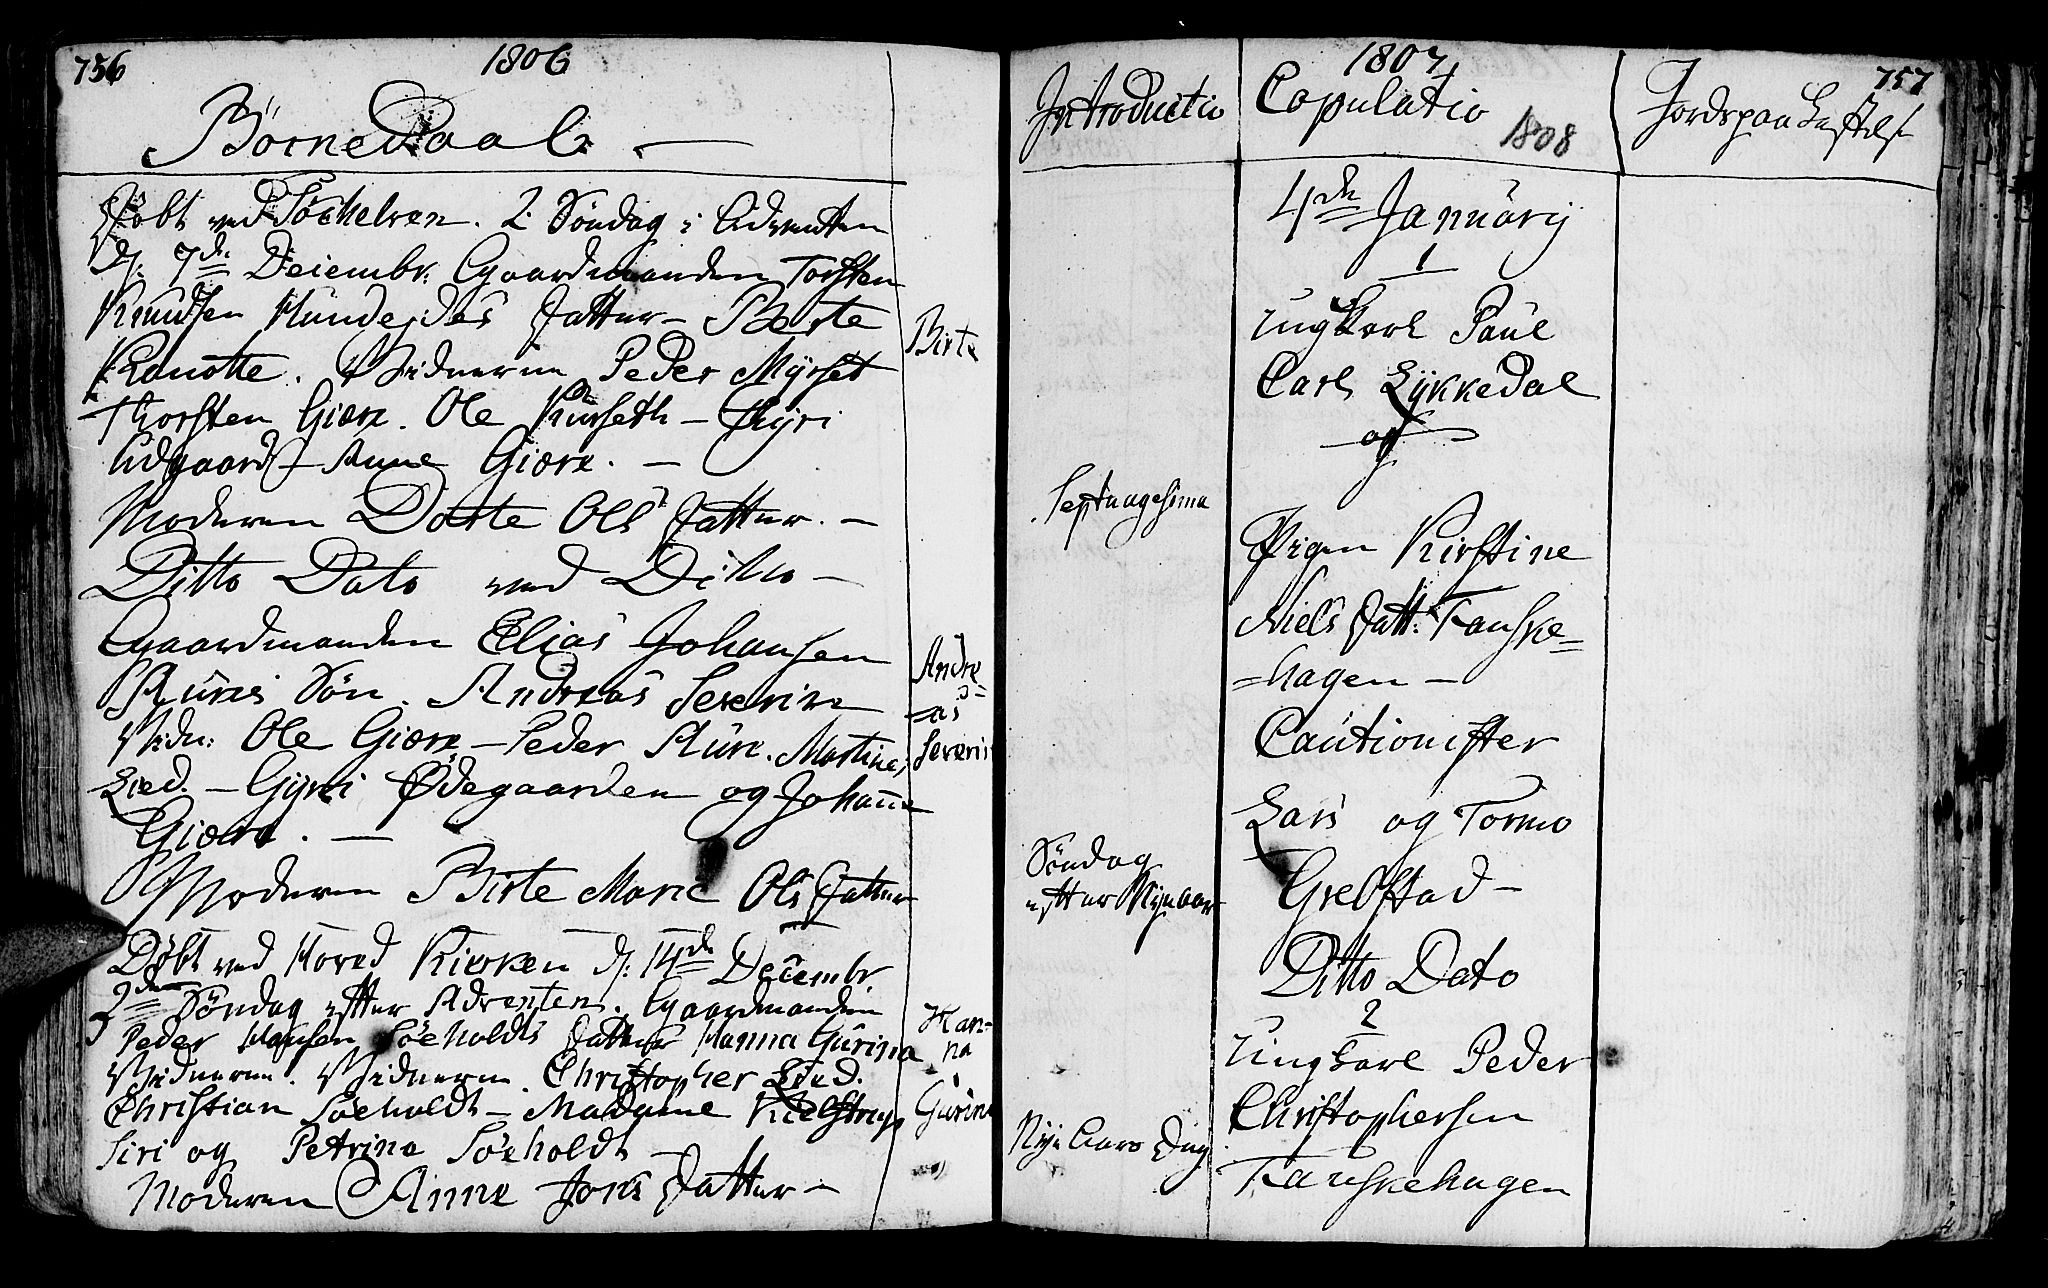 756
1806
BørneDaab. —
Døbt ved Søckelven. 2. Søndag i Adventen
d: 7de Deiembr: Gaardmanden Torsten
Knudsen Hundeides Datter — Berte
Ranotte. Vidnerne Peder Myrset
Thorsten Giære. Ole Kurseth — Gyri
Udgaard — Anne Giære. —
Moderen Dorte Ols Datter. —
Birte
Ditto Dato ved Ditto —
Gaardmanden Elias Johansen
Aures Søn. Andreas Severin
Vidn: Ole Giære — Peder Aure. Martine
Lied. — Gyri Ødegaarden og Johanne
Giære. —
Moderen Birte Marie Ols Datter
Andre
=as
Severin
Døbt ved Hoved Kirken d: 14de Decembr.
3die Søndag efter Adventen. Gaardmanden
Peder Hansen Søeholdts Datter Hanna Gurina
Vidnerne. Vidnerne. Christopher Lied.
Christian Søeholdt — Madame Kielstrup
Siri og Petrine Søeholdt —
Moderen Anne Jons Datter —
Han=
na
Gurina
Introductio
Septuagesima
Søndag
efter Nyeaar
Nye Aars Dag
1807
Copulatio
1808
4de Januarij
1
Ungkarl Paul
Carl Lykkedal
og
Pigen Kirstine
Niels Datt: Fauske=
=hagen —
Cautionister
Lars og Tormo
Grebstad —
Ditto Dato
2
Ungkarl Peder
Christophersen
Fauskehagen
757
Jordspaa Kastelse